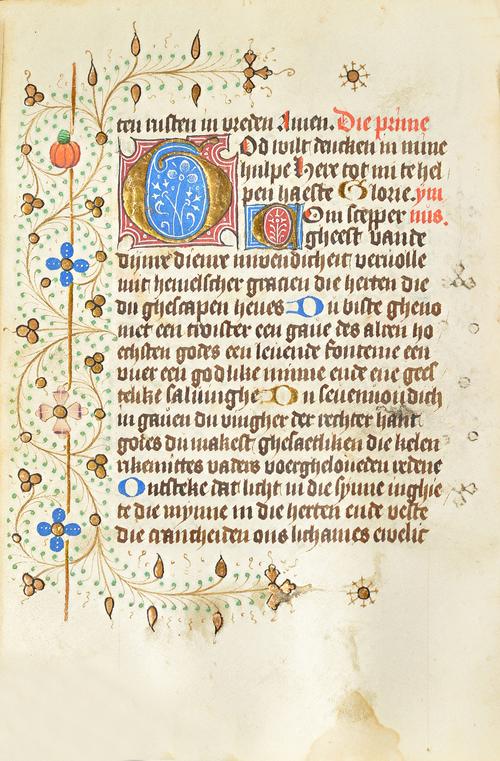 ten rusten in vreden Amen. Die prime
God wilt dencken in mine
hulpe Here tot mi te hel
pen haeste Glorie. ym
Com scepper nus.
gheest vande
dijnre dienre inwendicheit vervolle
mit hemelscher gracien die herten die
du ghescapen heves Du biste gheno
met een trooster een gave des alren ho
echsten godes een levende fonteine een
vuer een godlike minne ende een gees
telike salvinghe Du sevenvoudich
in gaven du vingher der rechter hant
godes du makest ghesaetliken die kelen
rikemittes vaders voerghelovenden redene
Ontsteke dat licht in die synne in ghie
te die mynne in die herten ende veste
die crancheiden ons lichames ewelic